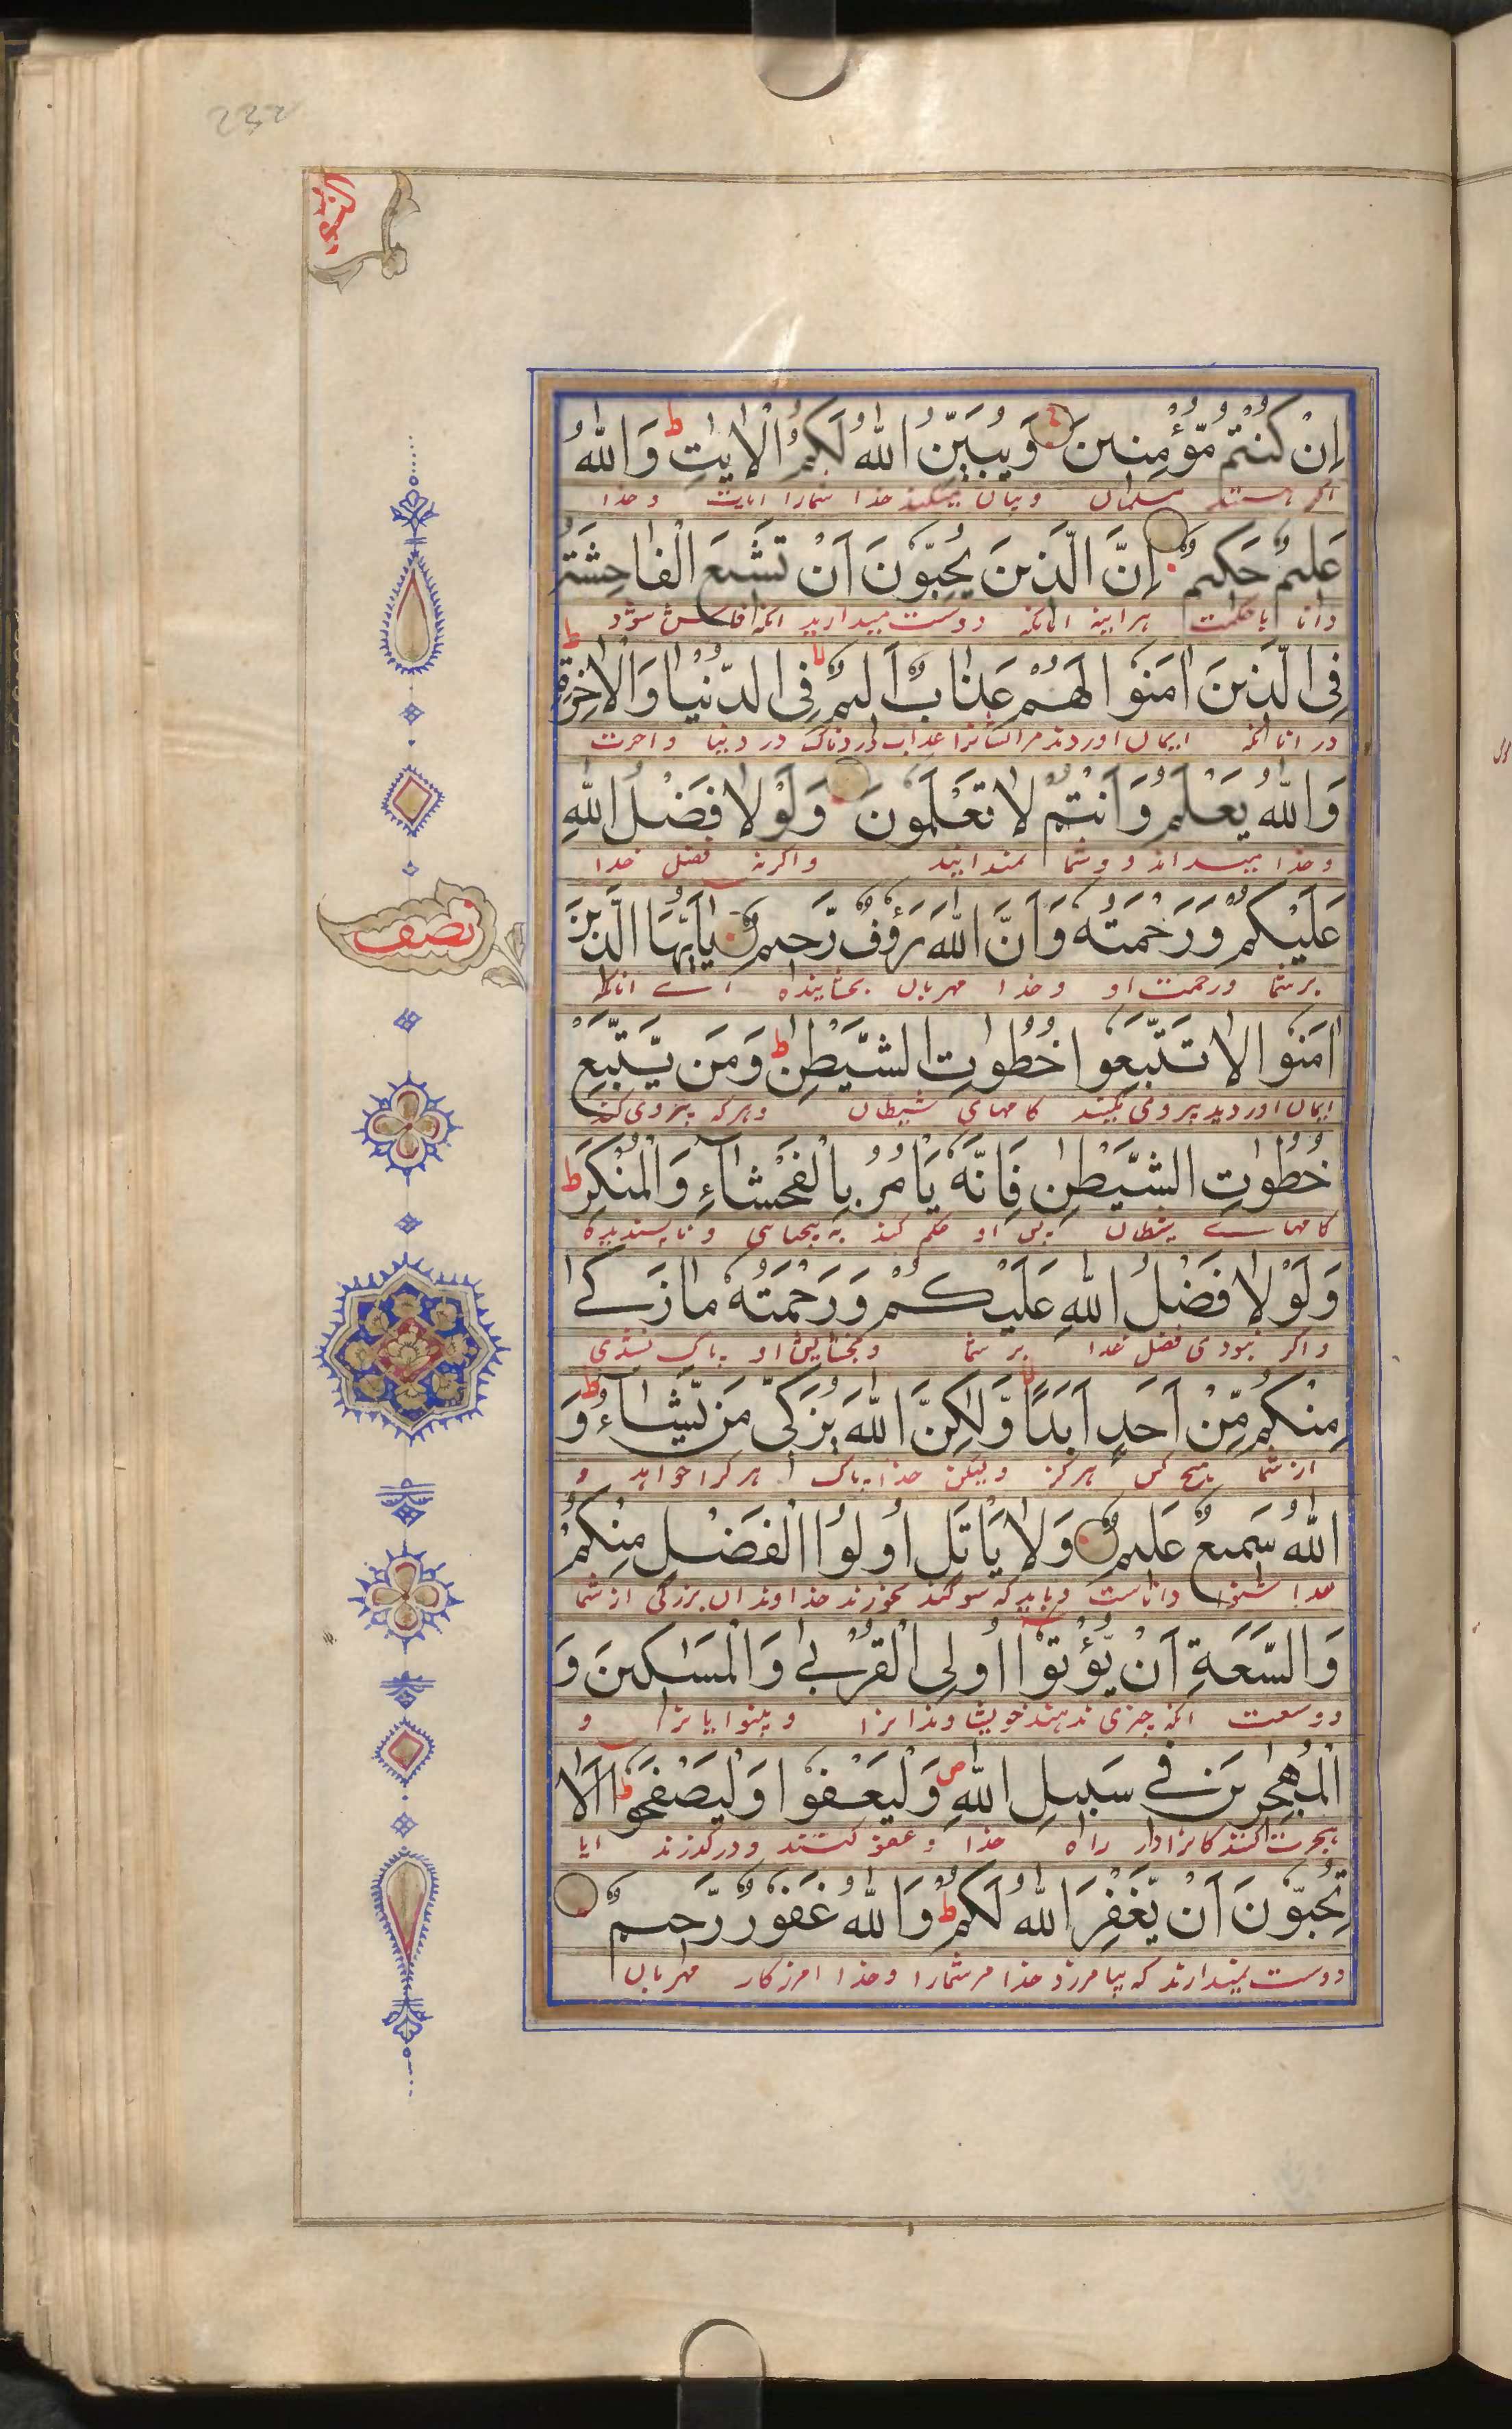 232
اِنْ كُنْتُمْ مُّؤْمِنِينَ وَيُبَيِّنُ اللّٰهُ لَكُمُ الْاٰيٰتِ ط وَاللّٰهُ
اگر هستند مسلمان وبیان میکند خدا شمارا ایات وخدا
عَلِيمٌ حَكِيمٌ اِنَّ الَّذِينَ يُحِبُّونَ اَنْ تَشِيعَ الْفَاحِشَةُ
دانا باحکمت هراینه انانکه دوست میدارید انکه فاش شود
فِى الَّذِينَ اٰمَنُوا لَهُمْ عَذَابٌ اَلِيمٌ لا فِى الدُّنْيَا وَالْاٰخِرَةِ ط
در انانکه ایمان اوردند مرایشانرا عذاب دردناک در دنیا واخرت
وَاللّٰهُ يَعْلَمُ وَاَنْتُمْ لَا تَعْلَمُونَ وَلَوْلَا فَضْلُ اللّٰهِ
وخدا میداند و وشما نمیدانید واگرنه فضل خدا
عَلَيْكُمْ وَرَحْمَتُهٗ وَاَنَّ اللّٰهَ رَؤُفٌ رَّحِيمٌ يٰٓاَيُّهَا الَّذِينَ
نصف
برشما ورحمت او وخدا مهربان بخشاینده اے انانکه
اٰمَنُوا لَا تَتَّبِعُوا خُطُوٰتِ الشَّيْطٰنِ ط وَمَن يَّتَّبِعْ
ایمان اوردید پیروی نکنید کامهای شیطان وهرکه پیروی کند
خُطُوٰتِ الشَّيْطٰنِ فَاِنَّهٗ يَاْمُرُ بِالْفَحْشَآءِ وَالْمُنْكَرِ ط
کامهاے شیطان پس او حکم کند به بیحیاسی و ناپسندیده
وَلَوْلَا فَضْلُ اللّٰهِ عَلَيْكُمْ وَرَحْمَتُهٗ مَا زَكٰى
واگر نبودی فضل خدا بر شما وبخشایش او پاک نشدی
مِنْكُمْ مِّنْ اَحَدٍ اَبَدًا لا وَّلٰكِنَّ اللّٰهَ يُزَكِّى مَنْ يَّشَآءُ ط وَ
از شما هیچ کس هرگز ولیکن خدا پاک هر کرا خواهد و
اللّٰهُ سَمِيعٌ عَلِيمٌ وَلَا يَاْتَلِ اُولُوا الْفَضْلِ مِنْكُمْ
خدا شنوا داناست وباید که سوگند نخورند خداوندان بزرگی از شما
وَالسَّعَةِ اَنْ يُّؤْتُوٓا اُولِى الْقُرْبٰى وَالْمَسٰكِينَ وَ
ووسعت انکه چیزی ندهند خویشاوندانرا وبینوایانرا و
الْمُهٰجِرِينَ فِى سَبِيلِ اللّٰهِ ص وَلْيَعْفُوا وَلْيَصْفَحُوا ط اَلَا
هجرت کنندکانرا در راه خدا و عفو کنند و درگذرند ایا
تُحِبُّونَ اَنْ يَّغْفِرَ اللّٰهُ لَكُمْ ط وَاللّٰهُ غَفُورٌ رَّحِيمٌ
دوست نمیدارند که بیامرزد خدا مرشمارا وخدا امرزکار مهربان